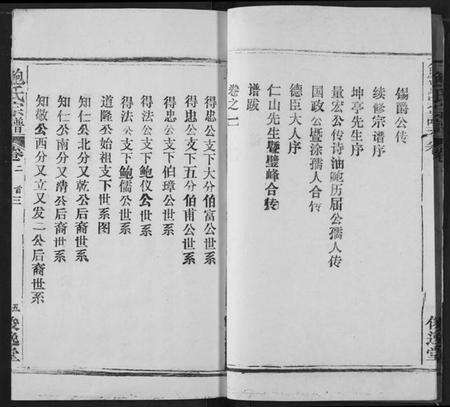 錫爵公传
续修宗谱序
坤亭先生序
量宏公传诗油鮑历届公孺人传
国政公暨徐孺人合传
德臣大人序
仁山先生暨璧峰合传
谱跋
卷之二
得忠公支下大分伯富公世系
得忠公支下五分伯甫公世系
得忠公支下伯璋公世系
得法公支下鲍仪公世系
得法公支下鲍儒公世系
道隆公始祖支下世系图
知仁公北分又乾公后裔世系
知仁公南分又清公后裔世系
知敬公西分又立又发二公后裔世系
鮑氏宗譜
卷二
首三
五
俊逸堂
俊逸堂